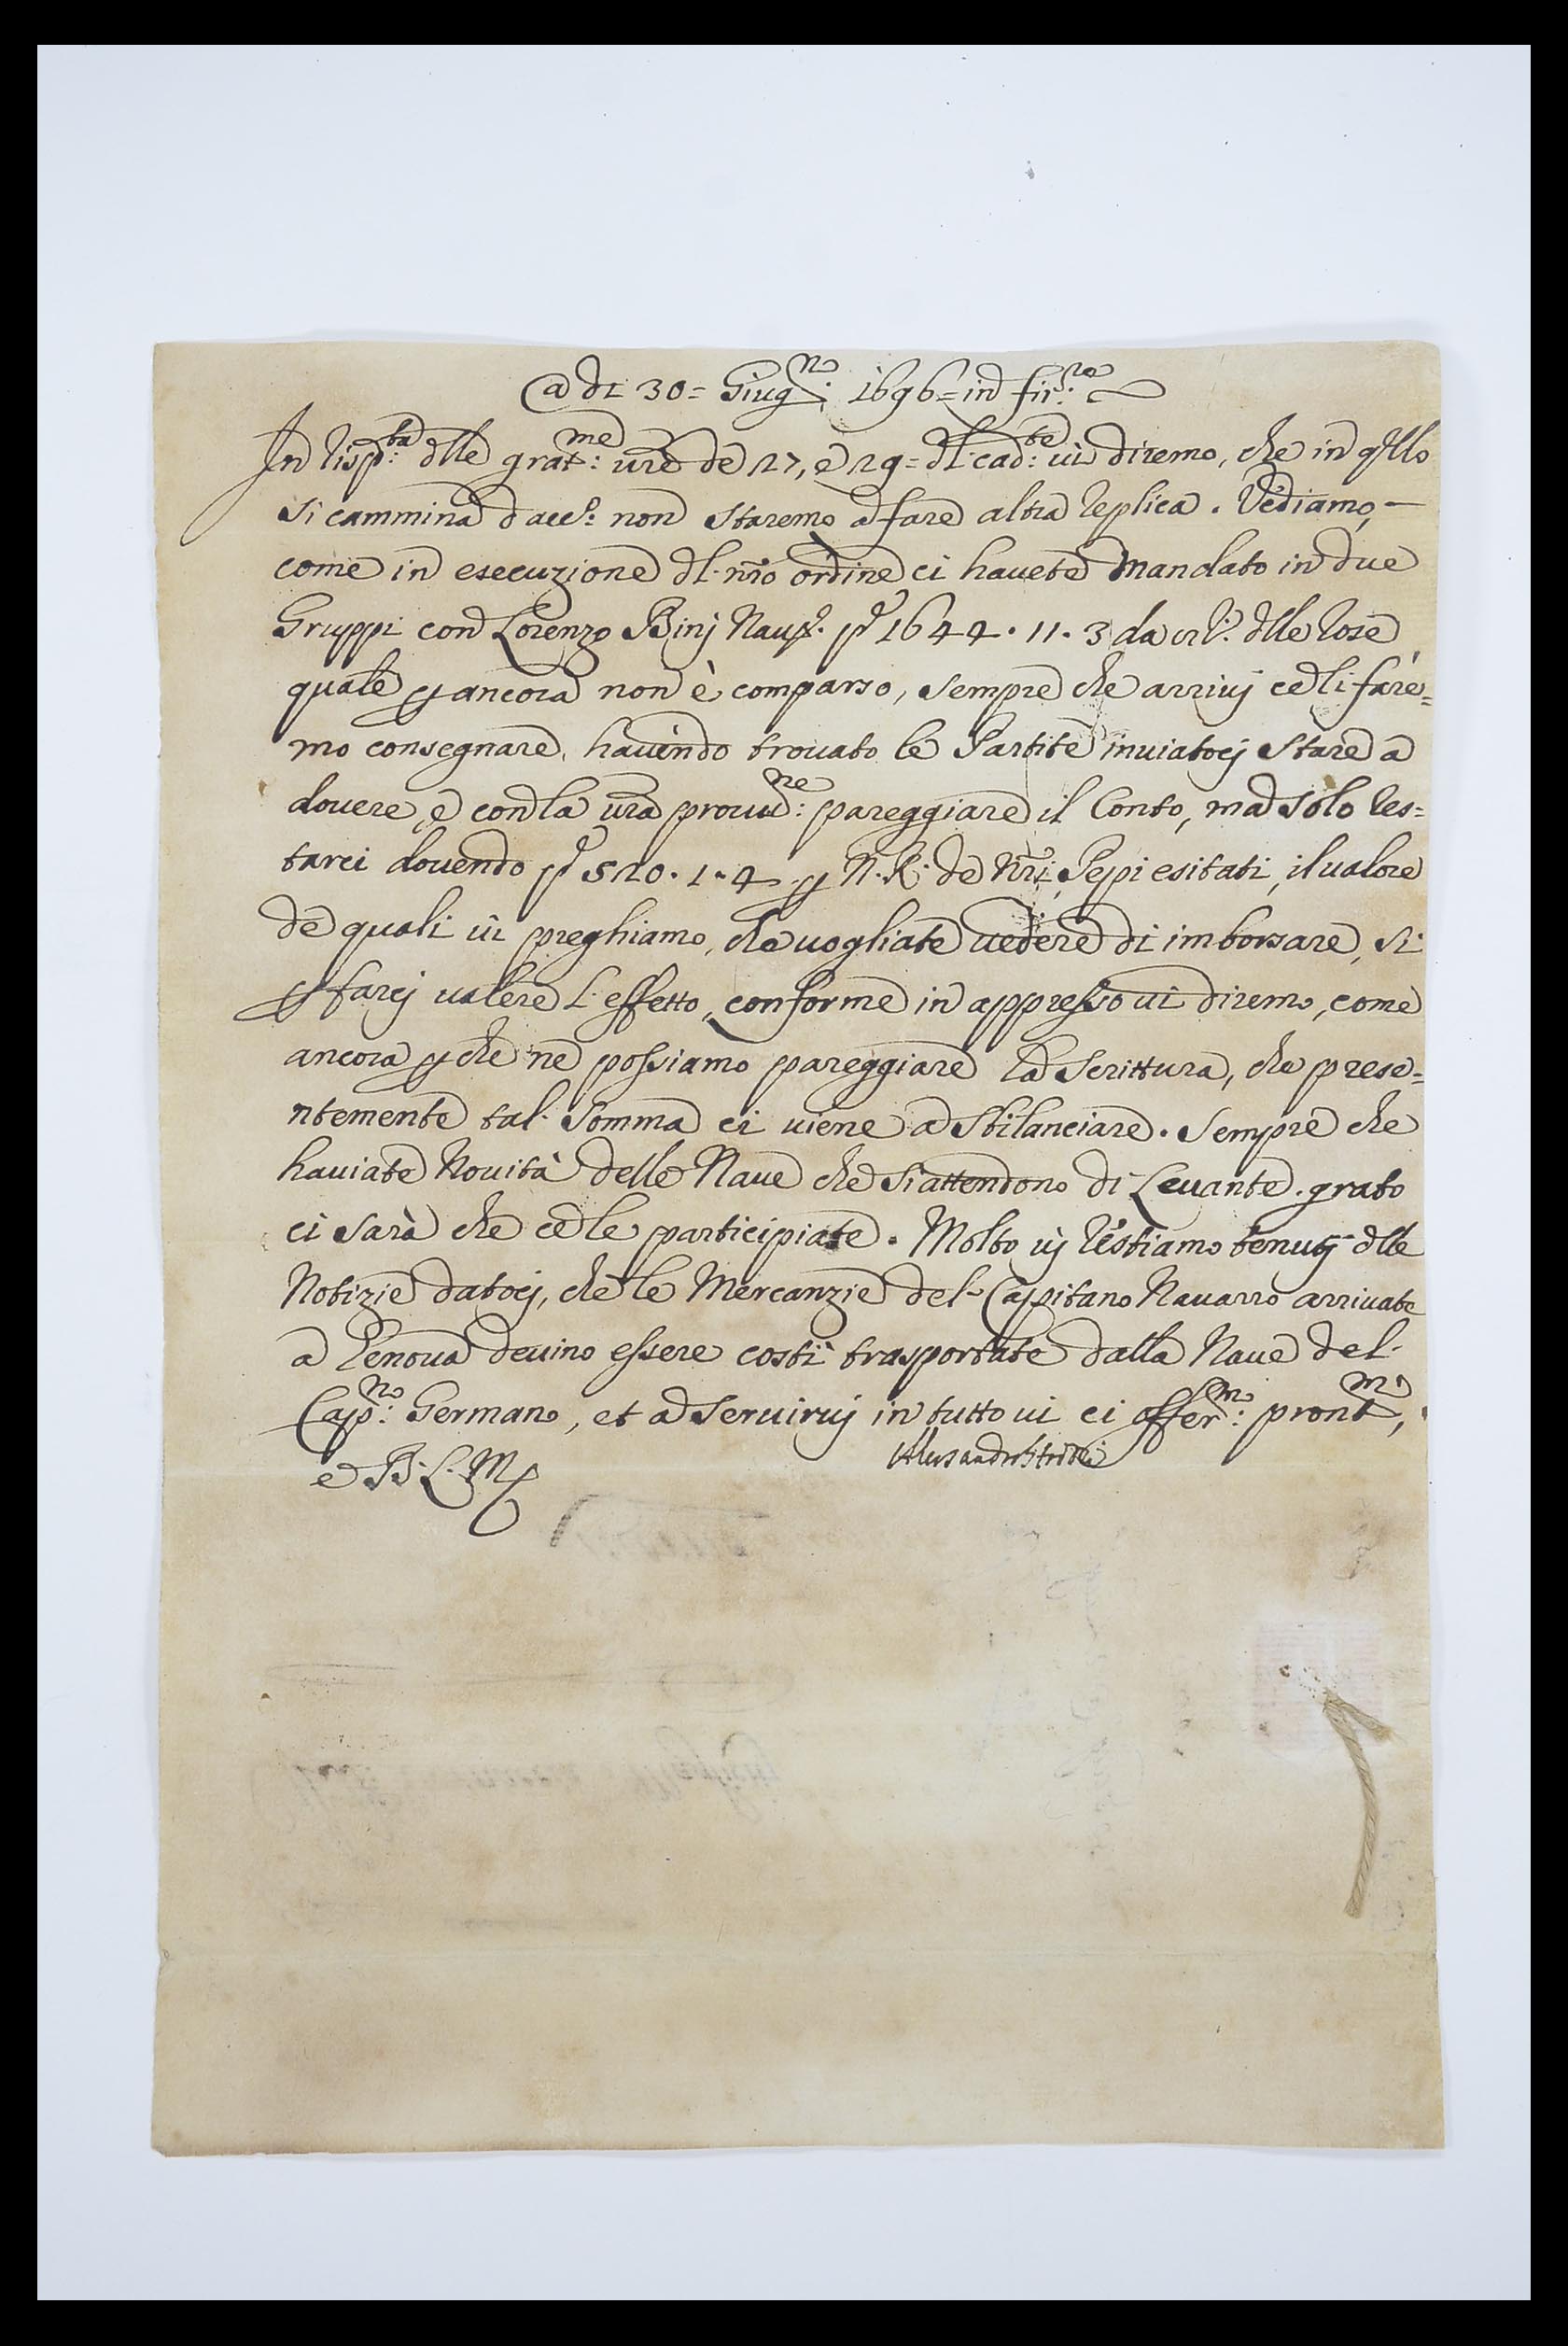 @ dì 30= Giug.no 1696= in fir.ze
In risp.ta dlle grat.me vre de 27, e 29= dl cad.te vi diremo, che in qsllo
si cammina d'acc.o non staremo a fare altra replica. Vediamo,
come in esecuzione dl nro ordine ci havete mandato in due
Gruppi con Lorenzo Binj Nau. p 1644.11.3 da dlle rose,
quale p ancora non è comparso, sempre che arriuj ce li fare=
mo consegnare, havendo trouato le Partite inuiatocj stare a
douere, e con la vra prouu.ne: pareggiare il Conto, ma solo res=
tarci douendo p 520.1.4 p N. R. de Nri Pepi esitati, il ualore
de quali vi preghiamo, che uogliate uedere di imborsare, si
p farcj ualere l'effetto, conforme in appresso ui diremo, come
ancora p che ne possiamo pareggiare la Scrittura, che prese=
ntemente tal Somma ci uiene a Sbilanciare. Sempre che
hauiate Nouità delle Naue che si attendono di Leuante. grato
ci sarà che ce le participiate. Molto uj restiamo tenutj dlle
Notizie datocj, che le Mercanzie del Capitano Nauarro arriuate
a Genoua deuino essere costì trasportate dalla Naue del
Cap.no: Germano, et a Seruiruj in tutto ui ci offer.mo: pront.mi,
e B. L. M.
Alessandro